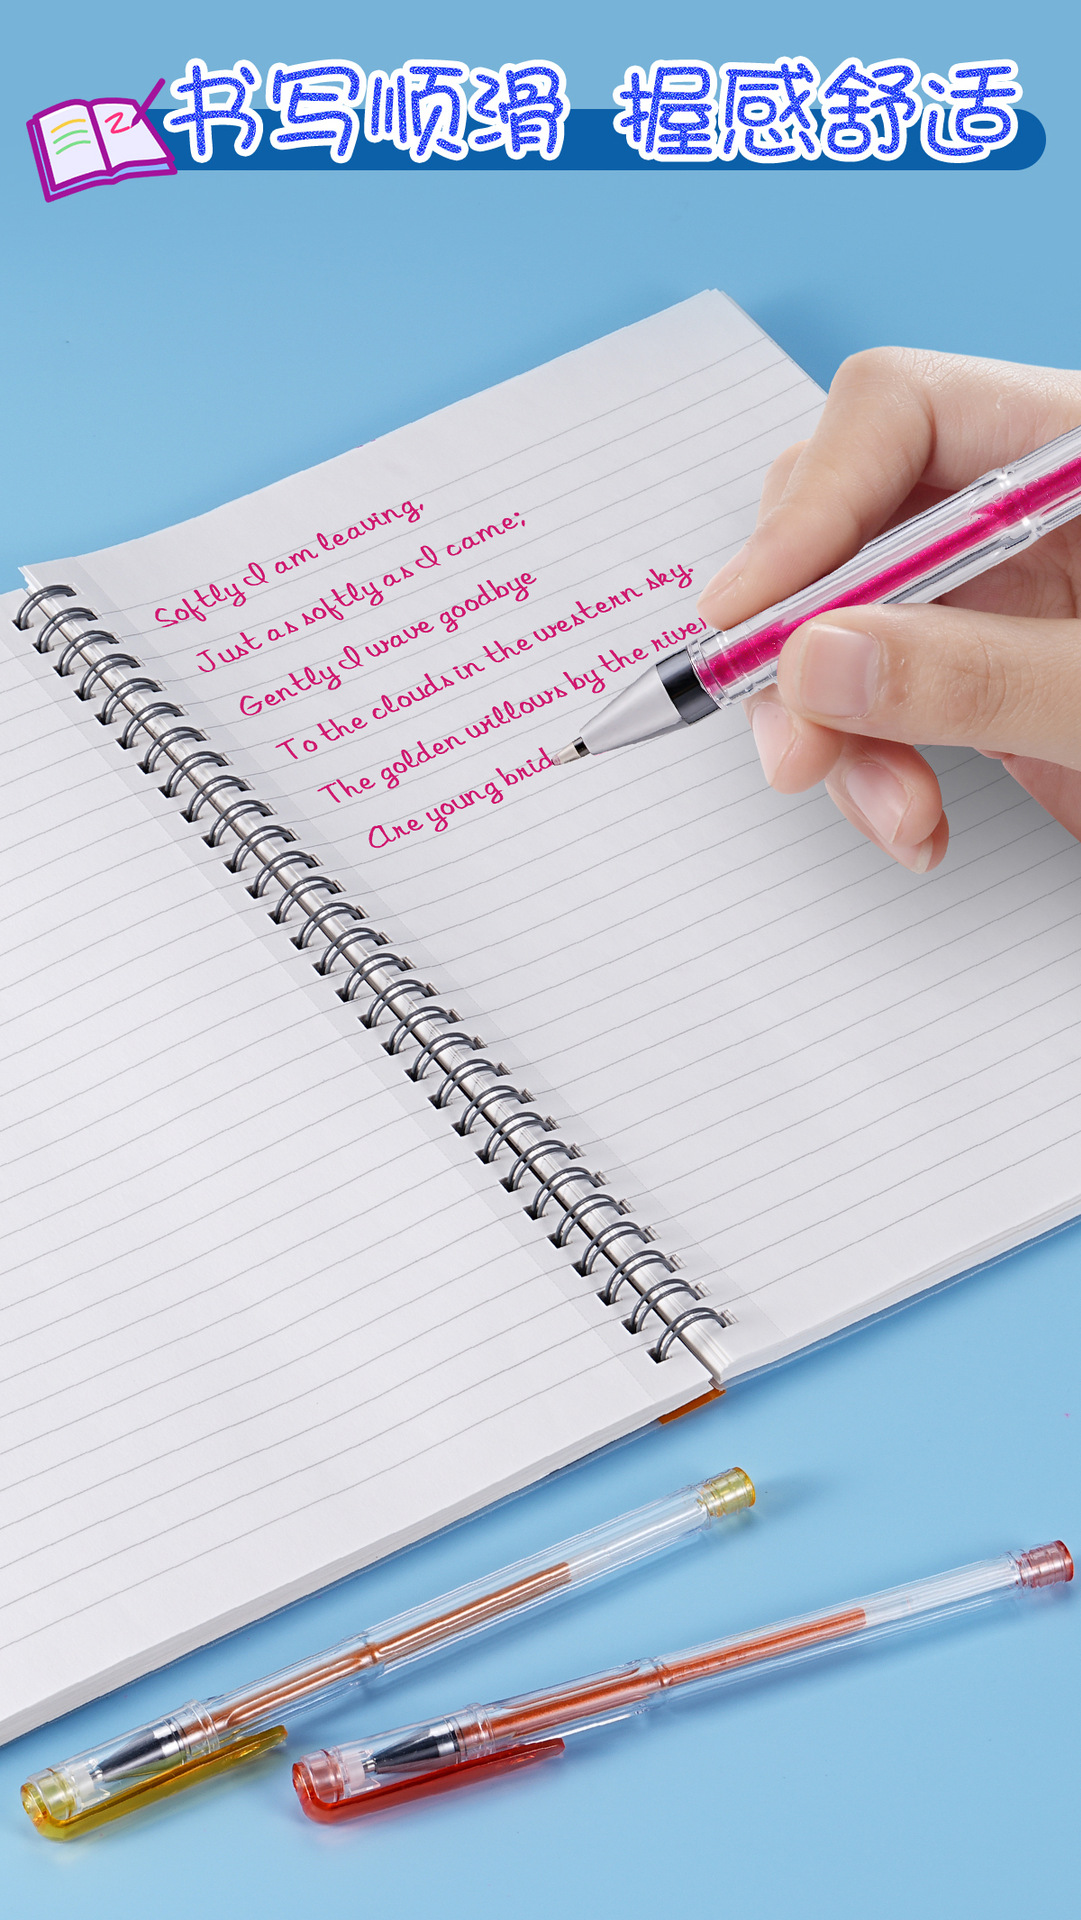 书写顺滑 握感舒适
Softly I am leaving,
Just as softly as I came;
Gently I wave goodbye
To the clouds in the western sky.
The golden willows by the river
Are young brid